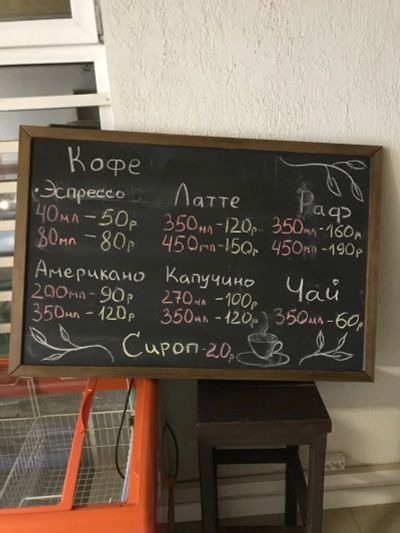 Кофе
Эспрессо
40мл - 50р
80мл - 80р
Латте
350мл - 120р
450мл - 150р
Раф
350мл - 160р
450мл - 190р
Американо
200мл - 90р
350мл - 120р
Капучино
270мл - 100р
350мл - 120р
Чай
350мл - 60р
Сироп - 20р